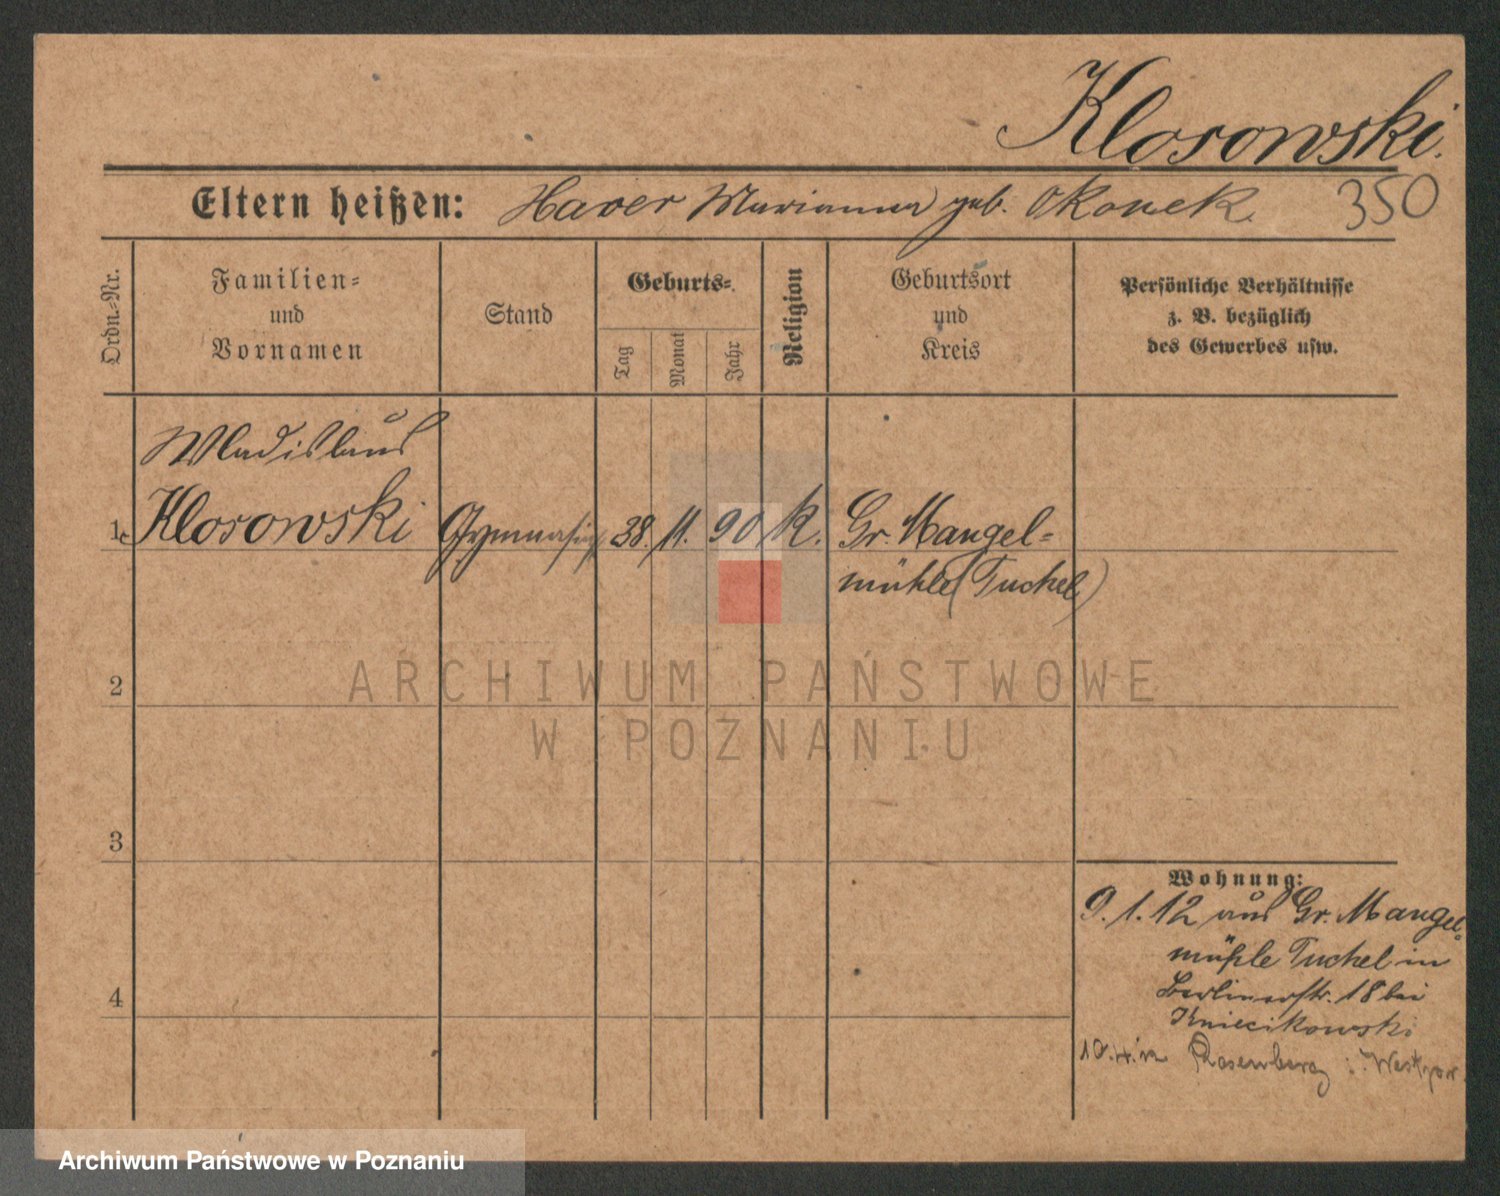 Klosowski.
Eltern heißen: Xaver Marianna geb. Okonek. 350
Ordn.-Nr.
Familien-
und
Vornamen
Stand
Geburts-
Tag
Monat
Jahr
Religion
Geburtsort
und
Kreis
Persönliche Verhältnisse
z. B. bezüglich
des Gewerbes usw.
Wladislaus
1. Klosowski 28. 11. 90 k. Gr. Mangel-
mühle (Tuchel)
2
3
4
Wohnung:
9. 1. 12 aus Gr. Mangel-
mühle Tuchel in
Berlinerstr. 18 bei
Kniecikowski
Rosenberg i. Westpr.
ARCHIWUM PAŃSTWOWE
W POZNANIU
Archiwum Państwowe w Poznaniu